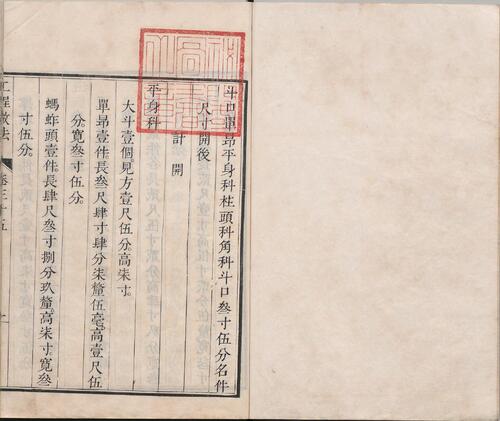 斗口單昂平身科柱頭科角科斗口叄寸伍分名件
尺寸開後
計開
平身科
大斗壹個見方壹尺伍分。高柒寸。
單昂壹件。長叄尺肆寸肆分柒釐伍毫。高壹尺伍
分。寬叄寸伍分。
螞蚱頭壹件。長肆尺叄寸捌分玖釐。高柒寸。寬叄
寸伍分。
工程做法 卷三十五 一